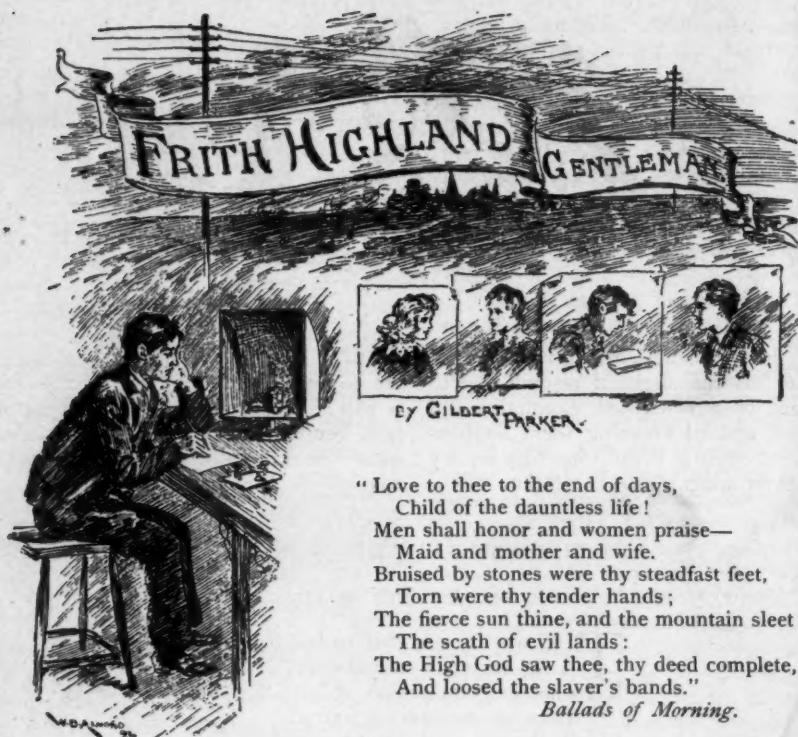 FRITH HIGHLAND GENTLEMAN.
BY GILBERT PARKER.
“ Love to thee to the end of days,
Child of the dauntless life !
Men shall honor and women praise—
Maid and mother and wife.
Bruised by stones were thy steadfast feet,
Torn were thy tender hands ;
The fierce sun thine, and the mountain sleet
The scath of evil lands :
The High God saw thee, thy deed complete,
And loosed the slaver's bands.”
Ballads of Morning.